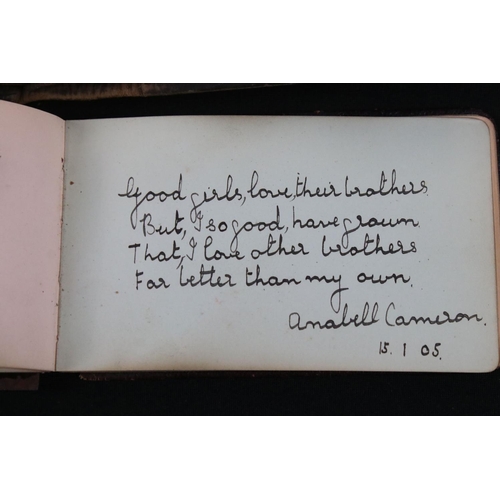 Good girls, love, their brothers
But, I so good, have grown
That, I love other brothers
Far better than my own.
Anabell Cameron.
15. 1 05.